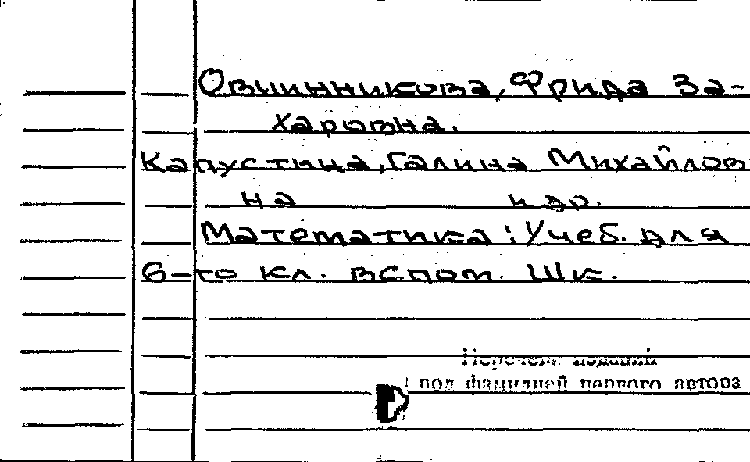 Овчинникова, Фрида За-
харовна.
Капустина, Галина Михайлов
на и др.
Математика: Учеб. для
6-го кл. вспом. шк.
Перечень изданий
под фамилией первого автора